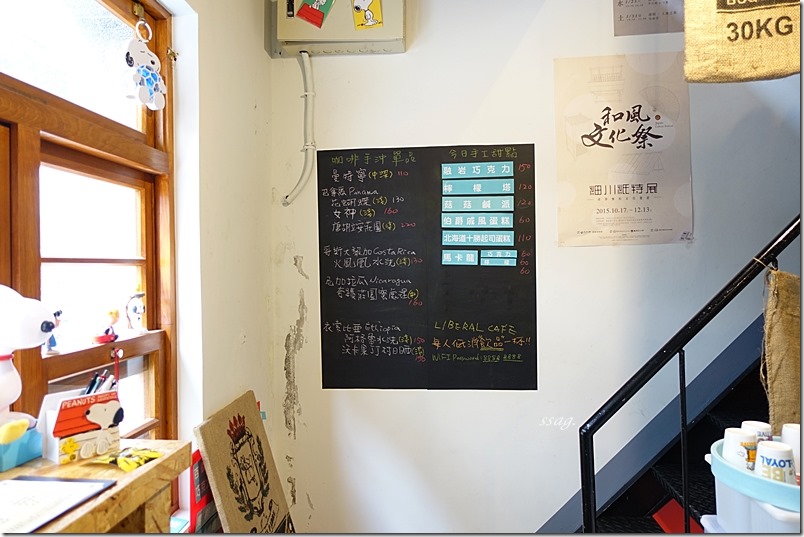 咖啡手沖單品
曼特寧(中深) 110
Panama
花蝴蝶(淺) 130
女神(淺) 160
莊園(淺) 220
哥斯大黎加 Costa Rica
火鳳凰水洗(淺)130
尼加拉瓜 Nicaragua
160
衣索比亞 Ethiopia
水洗(淺)150
日曬(淺)
今日手工甜點
融岩巧克力 150
檸檬塔 120
菇菇鹹派 120
伯爵戚風蛋糕 60
北海道十勝起司蛋糕 110
馬卡龍 60
60
60
LIBERAL CAFE
每人低消飲品一杯!!
WIFI Password: 8888 8888
和風
文化祭
細川紙特展
2015.10.17. - 12.13.
30KG
PEANUTS
BE
LOYAL
ssag.